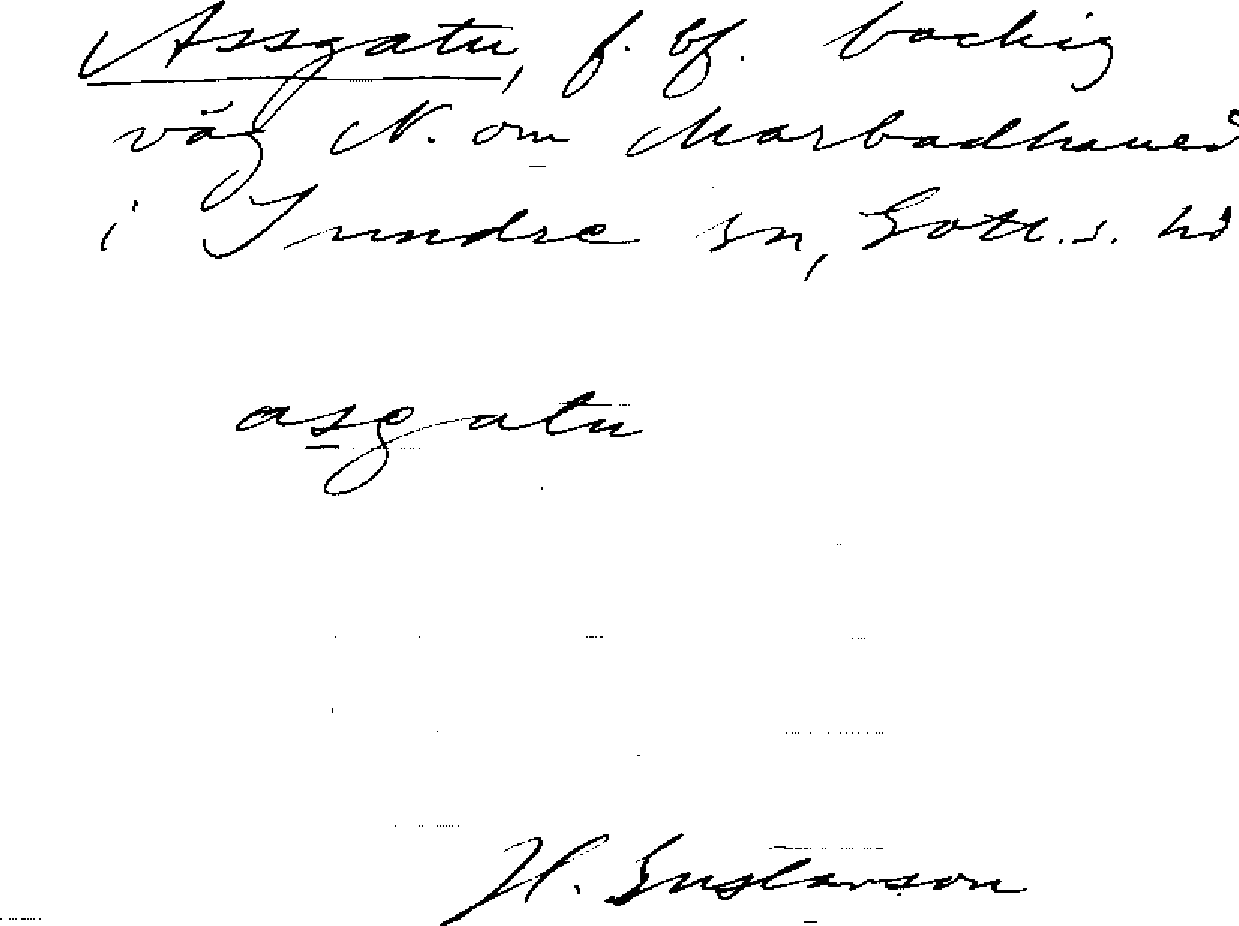 Assgatu, f. bf. backig
väg N. om Marbodhaued
i Sundre sn, Gotl. s. hd
asgatu
H. Gustavson